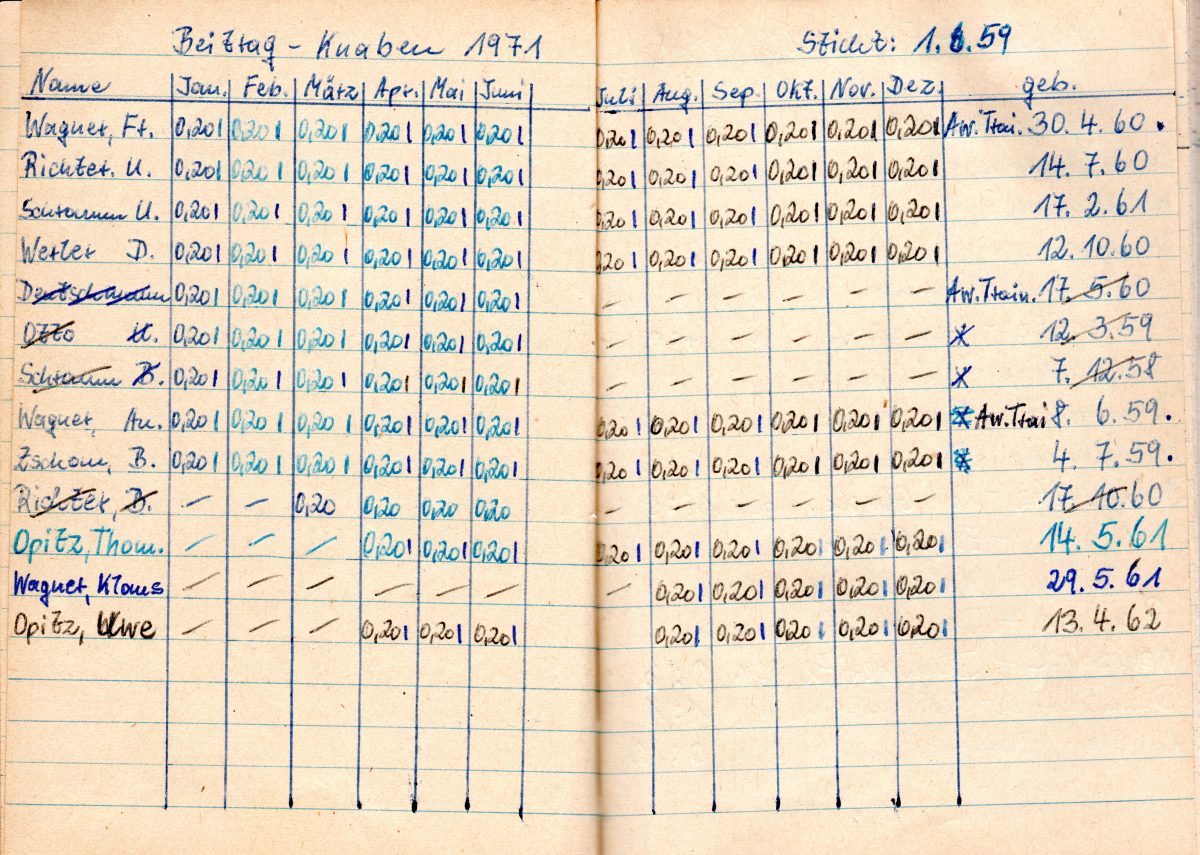 Beitrag - Knaben 1971 Sticht: 1. 6. 59
Name Jan. Feb. März Apr. Mai Juni Juli Aug. Sep. Okt. Nov. Dez. geb.
Wagner, Fr. 0,20 0,20 0,20 0,20 0,20 0,20 0,20 0,20 0,20 0,20 0,20 0,20 Aw. Trai. 30. 4. 60 .
Richter. U. 0,20 0,20 0,20 0,20 0,20 0,20 0,20 0,20 0,20 0,20 0,20 0,20 14. 7. 60
Schramm U. 0,20 0,20 0,20 0,20 0,20 0,20 0,20 0,20 0,20 0,20 0,20 0,20 17. 2. 61
Werler D. 0,20 0,20 0,20 0,20 0,20 0,20 0,20 0,20 0,20 0,20 0,20 0,20 12. 10. 60
Deutschmann 0,20 0,20 0,20 0,20 0,20 0,20 – – – – – – Aw. Train. 17. 5. 60
Otto U. 0,20 0,20 0,20 0,20 0,20 0,20 – – – – – – x 12. 3. 59
Schramm B. 0,20 0,20 0,20 0,20 0,20 0,20 – – – – – – x 7. 12. 58
Wagner, An. 0,20 0,20 0,20 0,20 0,20 0,20 0,20 0,20 0,20 0,20 0,20 0,20 x Aw. Trai 8. 6. 59 .
Zschom, B. 0,20 0,20 0,20 0,20 0,20 0,20 0,20 0,20 0,20 0,20 0,20 0,20 x 4. 7. 59 .
Richter, B. – – 0,20 0,20 0,20 0,20 – – – – – – 17. 10. 60
Opitz, Thom. – – – 0,20 0,20 0,20 0,20 0,20 0,20 0,20 0,20 0,20 14. 5. 61
Wagner, Klaus – – – – – – – 0,20 0,20 0,20 0,20 0,20 29. 5. 61
Opitz, Uwe – – – 0,20 0,20 0,20 0,20 0,20 0,20 0,20 0,20 13. 4. 62